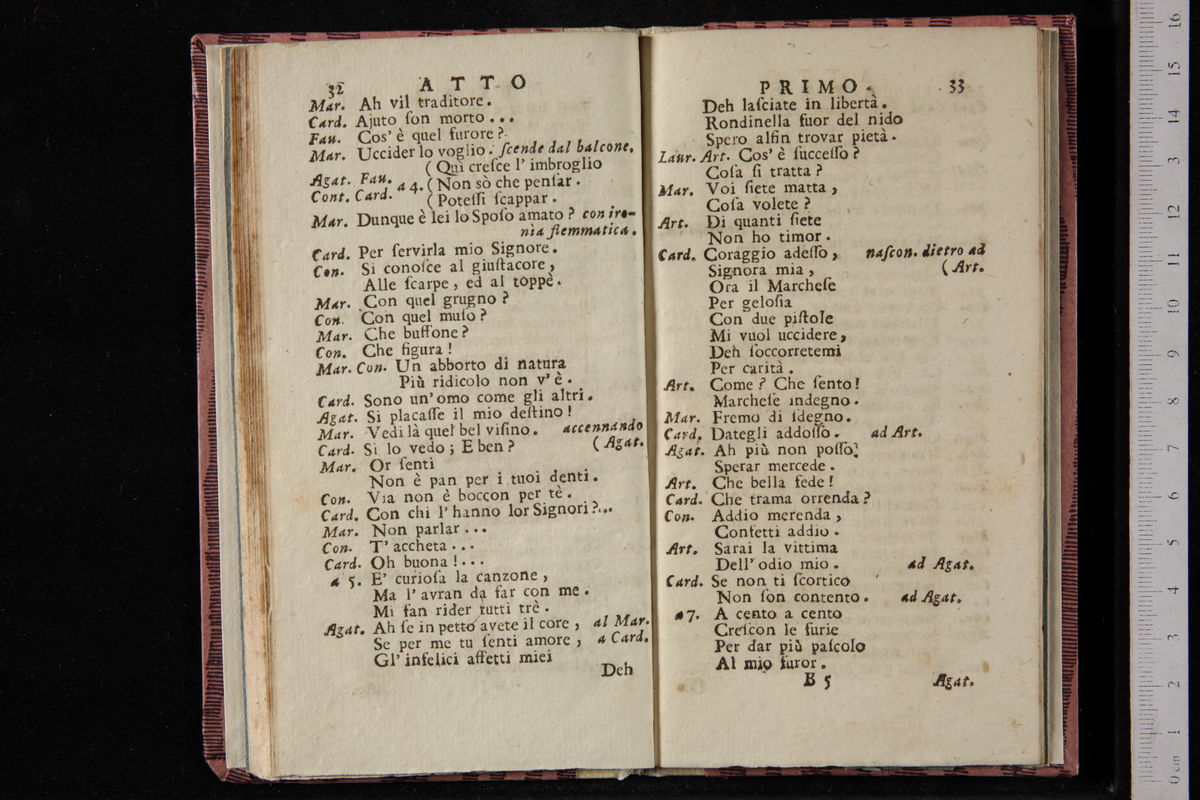 32 ATTO
Mar. Ah vil traditore.
Card. Ajuto ſon morto...
Fau. Cos' è quel furore?
Mar. Uccider lo voglio. ſcende dal balcone.
(Qui creſce l' imbroglio
Agat. Fau. a 4. (Non sò che penſar.
Cont. Card. (Poteſſi ſcappar.
Mar. Dunque è lei lo Spoſo amato? con iro-
nia flemmatica.
Card. Per ſervirla mio Signore.
Con. Si conoſce al giuſtacore,
Alle ſcarpe, ed al toppè.
Mar. Con quel grugno?
Con. Con quel muſo?
Mar. Che buffone?
Con. Che figura!
Mar. Con. Un abborto di natura
Più ridicolo non v' è.
Card. Sono un' omo come gli altri.
Agat. Si placaſſe il mio deſtino!
Mar. Vedi là quel bel viſino. accennando
Card. Sì lo vedo; E ben? (Agat.
Mar. Or ſenti
Non è pan per i tuoi denti.
Con. Via non è boccon per tè.
Card. Con chi l' hanno lor Signori?...
Mar. Non parlar...
Con. T' accheta...
Card. Oh buona!...
a 5. E' curioſa la canzone,
Ma l' avran da far con me.
Mi fan rider tutti trè.
Agat. Ah ſe in petto avete il core, al Mar.
Se per me tu ſenti amore, a Card.
Gl' infelici affetti miei
Deh
PRIMO. 33
Deh laſciate in libertà.
Rondinella fuor del nido
Spero alfin trovar pietà.
Laur. Art. Cos' è ſucceſſo?
Coſa ſi tratta?
Mar. Voi ſiete matta,
Coſa volete?
Art. Di quanti ſiete
Non ho timor.
Card. Coraggio adeſſo, naſcon. dietro ad
Signora mia, (Art.
Ora il Marcheſe
Per geloſia
Con due piſtole
Mi vuol uccidere,
Deh ſoccorretemi
Per carità.
Art. Come? Che ſento!
Marcheſe indegno.
Mar. Fremo di ſdegno.
Card. Dategli addoſſo. ad Art.
Agat. Ah più non poſſo
Sperar mercede.
Art. Che bella fede!
Card. Che trama orrenda?
Con. Addio merenda,
Confetti addio.
Art. Sarai la vittima
Dell' odio mio. ad Agat.
Card. Se non ti ſcortico
Non ſon contento. ad Agat.
a 7. A cento a cento
Creſcon le furie
Per dar più paſcolo
Al mio furor.
B 5 Agat.
0 cm 1 2 3 4 5 6 7 8 9 10 11 12 13 14 15 16